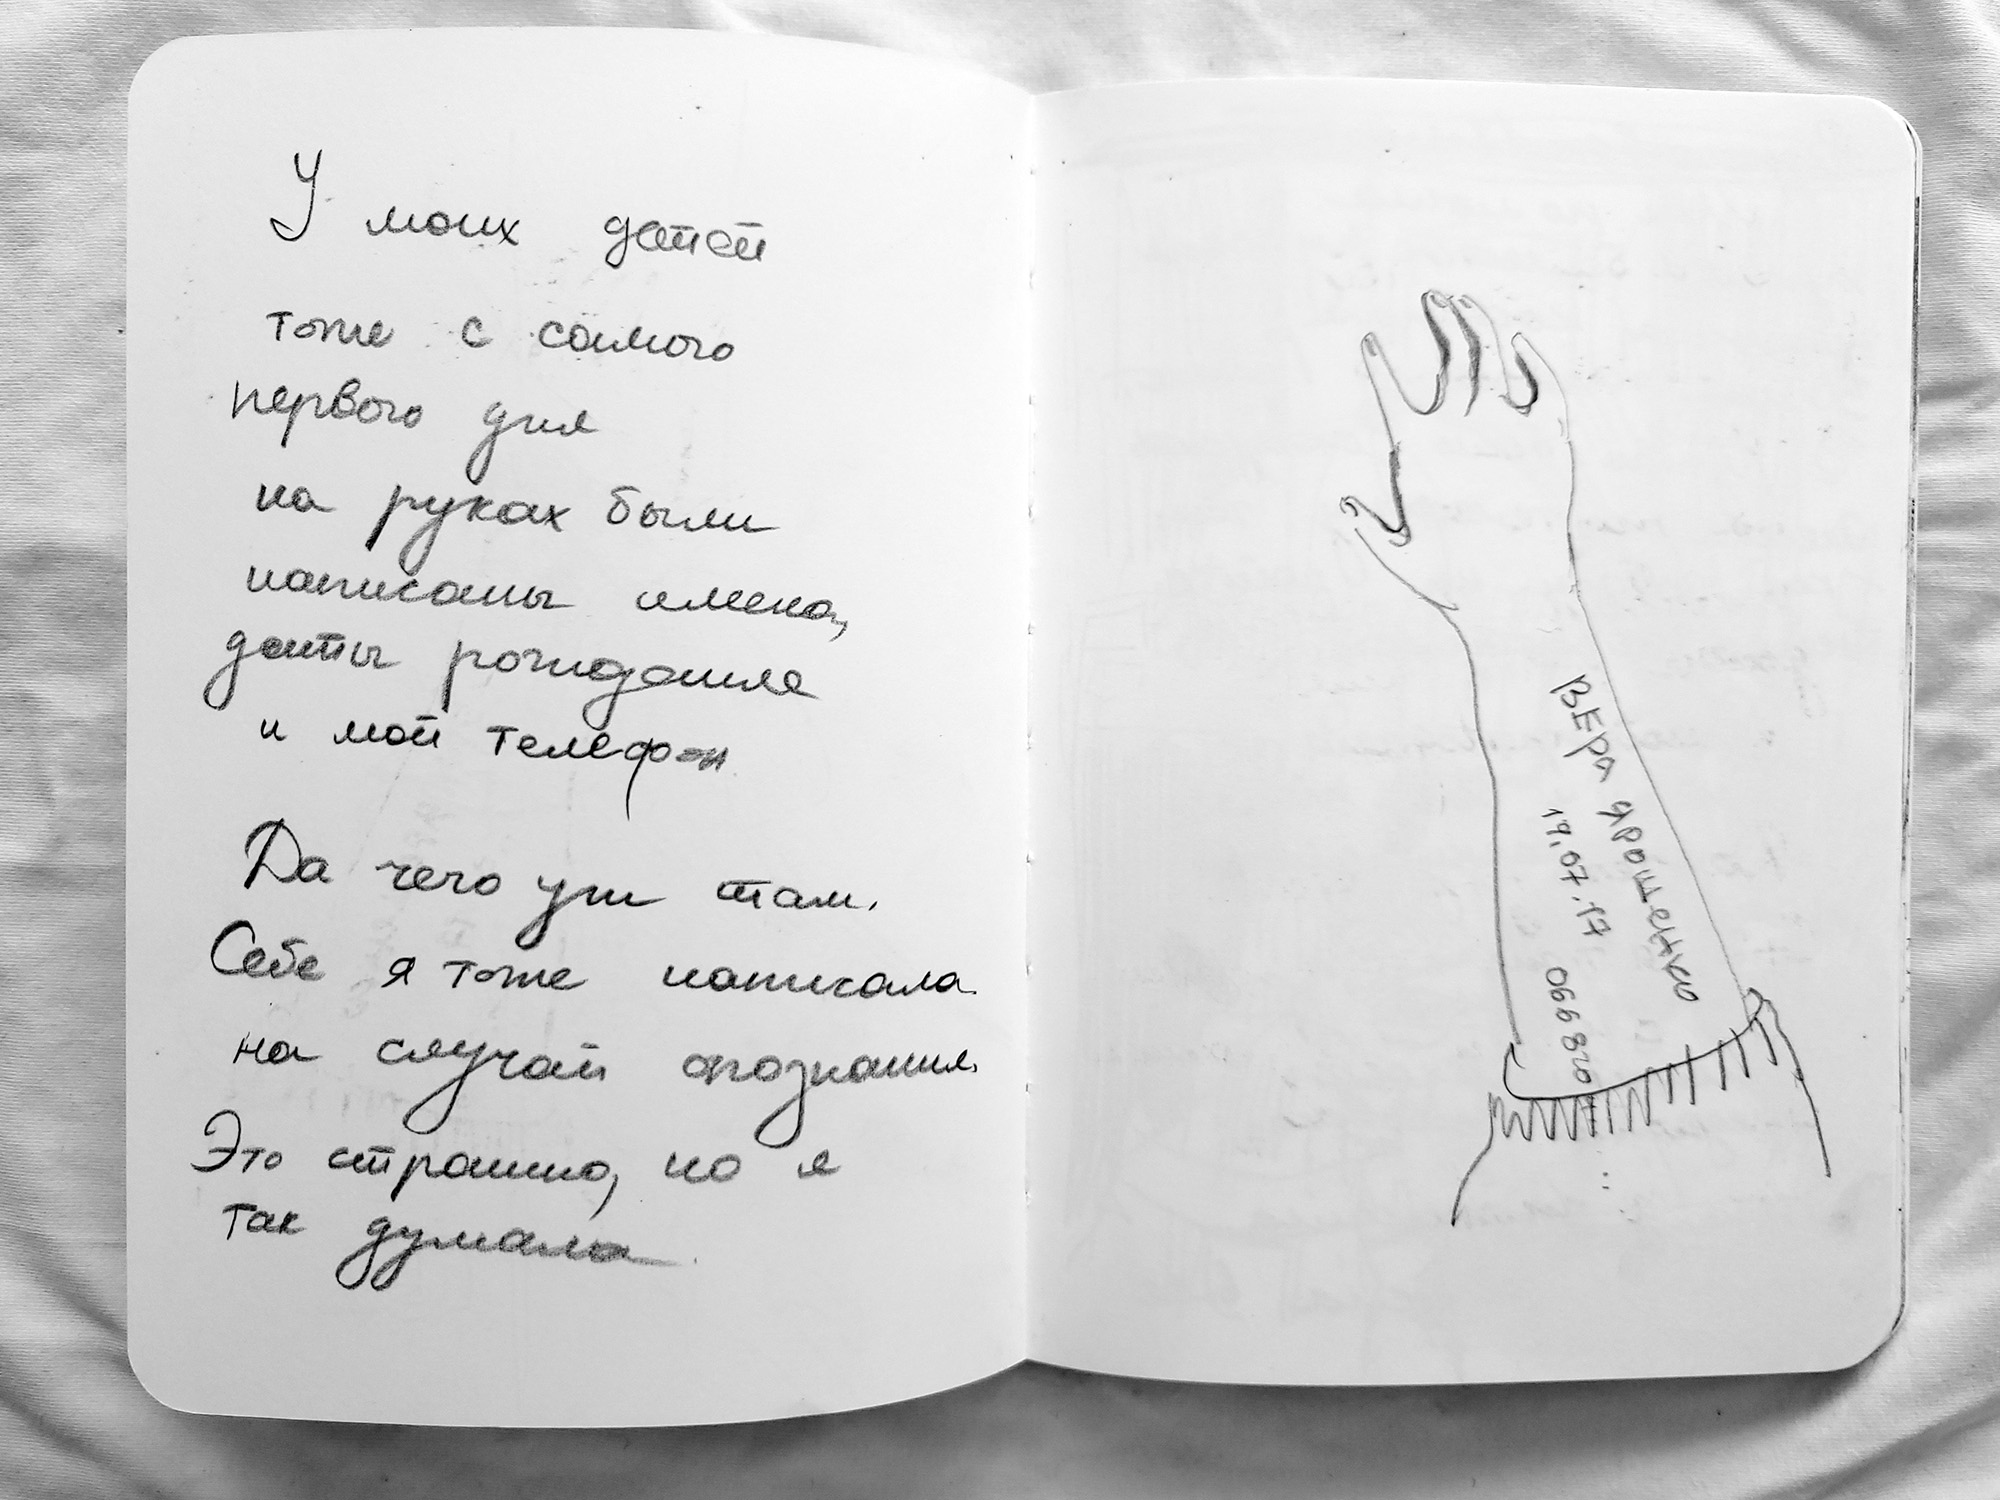 У моих детей
тоже с самого
первого дня
на руках были
написаны имена,
даты рождания
и мой телефон
Да чего уж там.
Себе я тоже написала
на случай опознания.
Это страшно, но я
так думала.
ВЕРа ЯРОЩЕНКО
19.07.17
0668990...